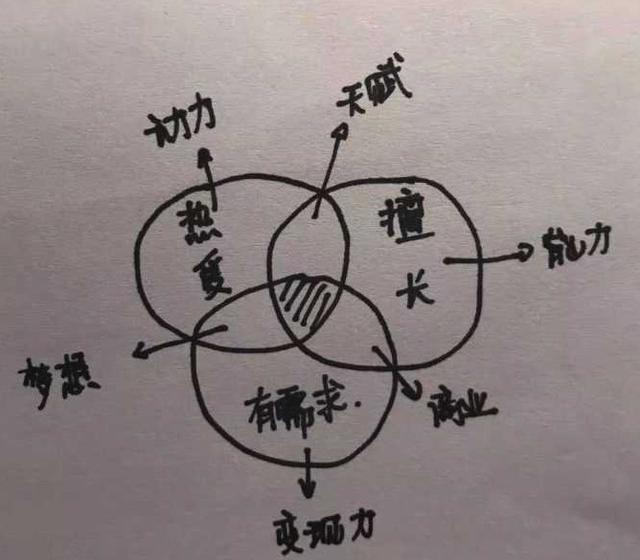 天赋
动力
热爱
擅长
能力
梦想
有需求.
商业
变现力